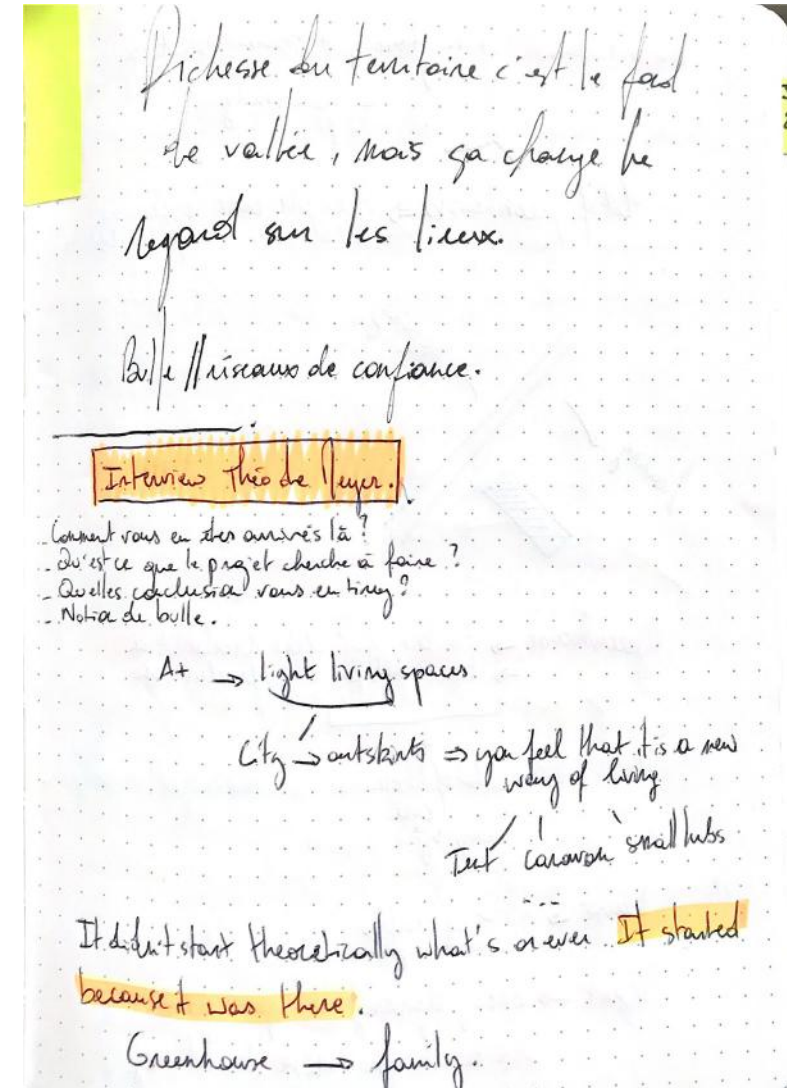 Richesse du territoire c'est le fond
de vallée, mais ça change le
regard sur les lieux.
Bulle // réseaux de confiance.
Interview Théo de Meyer.
- Comment vous en êtes arrivés là ?
- Qu'est ce que le projet cherche à faire ?
- Quelles conclusion vous en tirez ?
- Notion de bulle.
A+ → light living spaces
City → outskirts ⇒ you feel that it is a new
way of living
Tent caravan small hubs
...
It didn't start theoretically what's or ever. It started
because it was there.
Greenhouse → family.